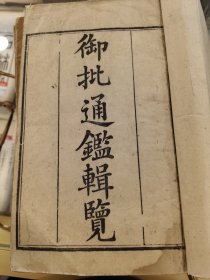 御批通鑑輯覽